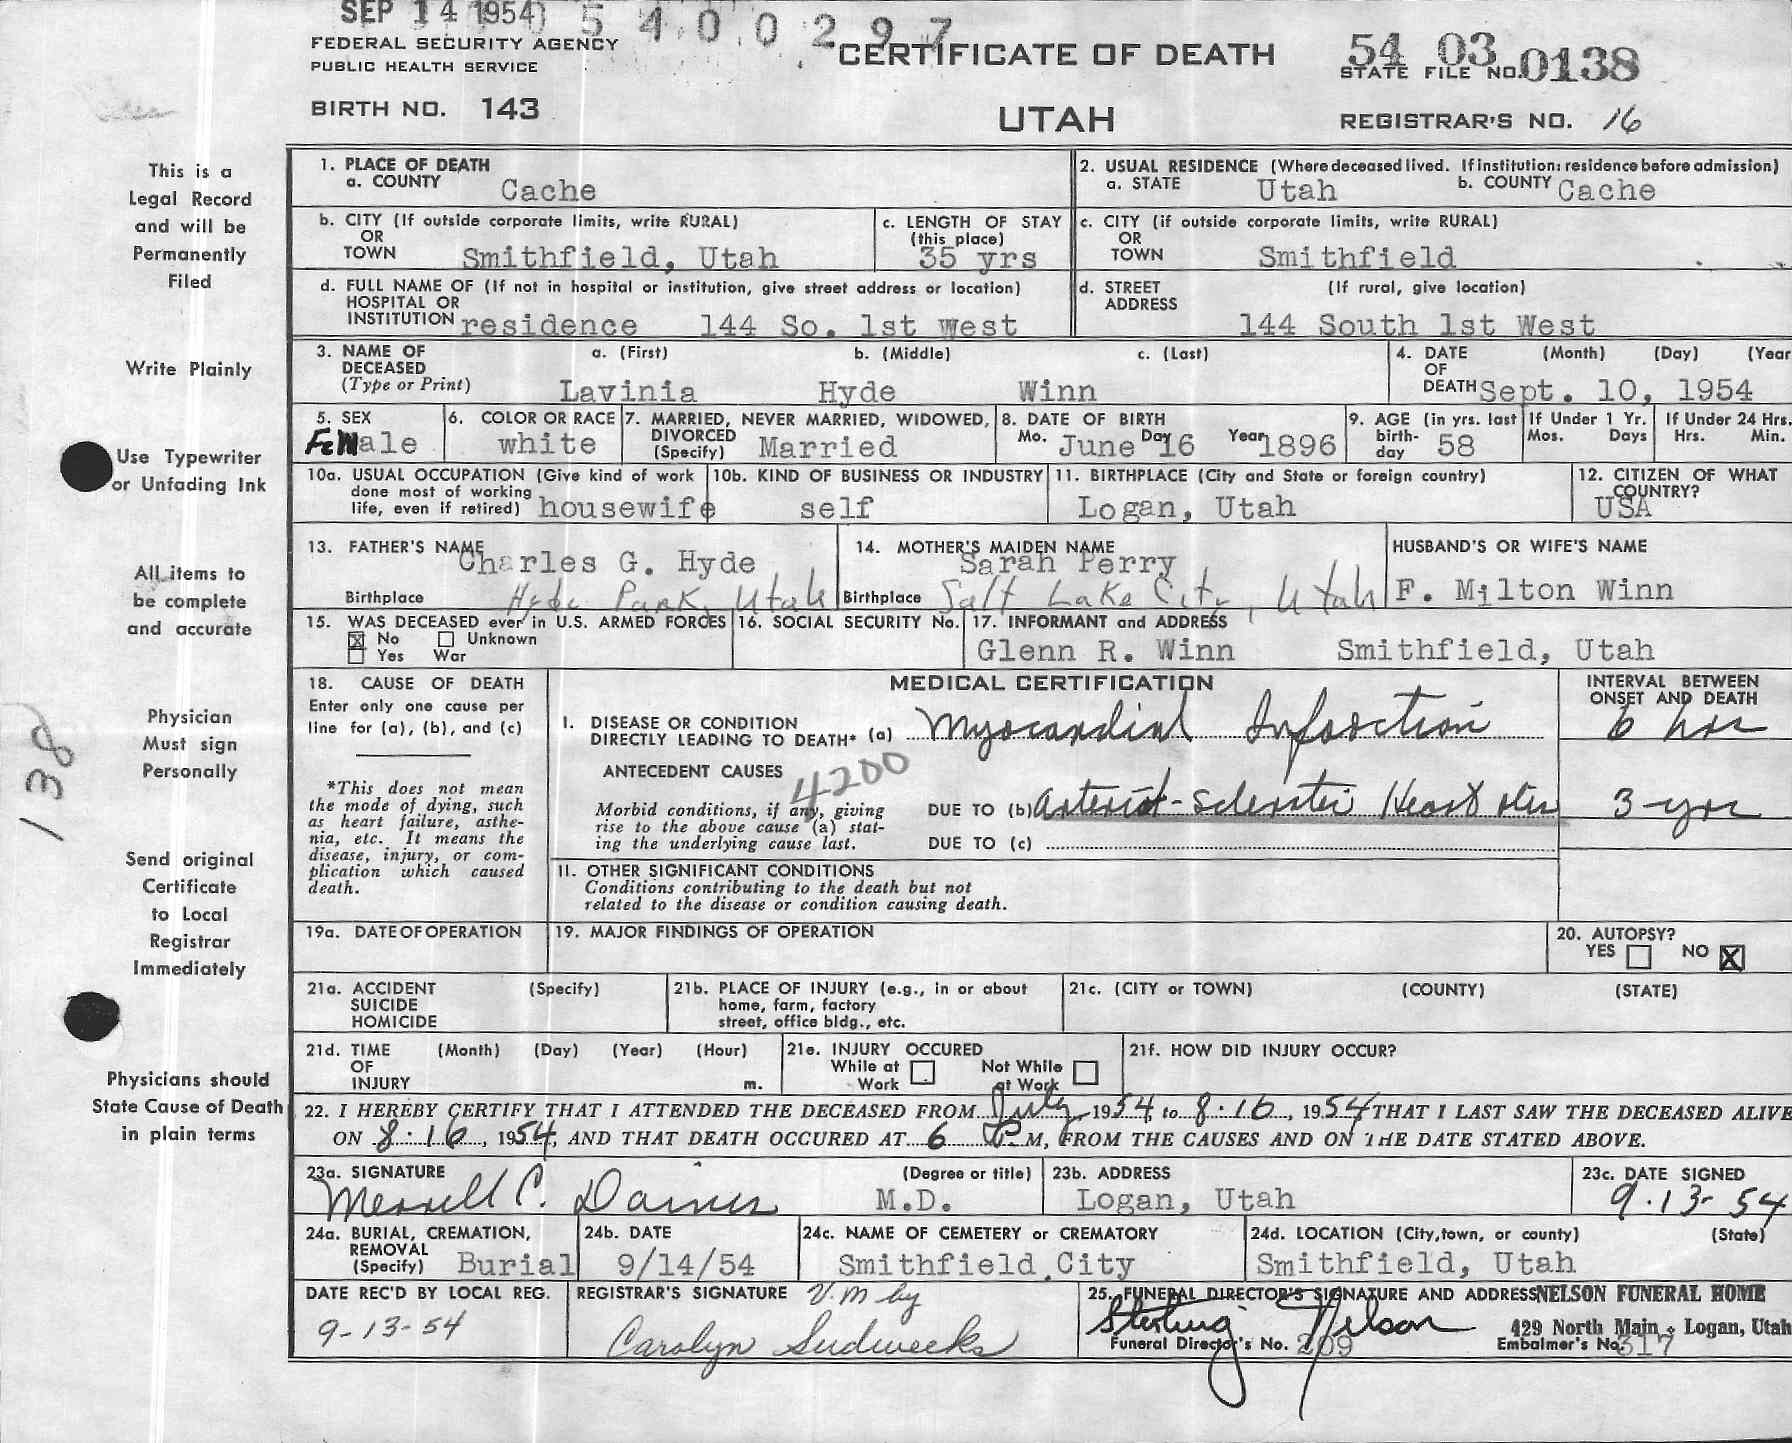 SEP 14 1954
5400297
FEDERAL SECURITY AGENCY
PUBLIC HEALTH SERVICE
CERTIFICATE OF DEATH
54 03 0138
STATE FILE NO.
BIRTH NO. 143
UTAH
REGISTRAR'S NO. 16
This is a
Legal Record
and will be
Permanently
Filed
Write Plainly
Use Typewriter
or Unfading Ink
All items to
be complete
and accurate
Physician
Must sign
Personally
138
Send original
Certificate
to Local
Registrar
Immediately
Physicians should
State Cause of Death
in plain terms
1. PLACE OF DEATH
a. COUNTY Cache
2. USUAL RESIDENCE (Where deceased lived. If institution: residence before admission)
a. STATE Utah b. COUNTY Cache
b. CITY (If outside corporate limits, write RURAL)
OR
TOWN Smithfield, Utah
c. LENGTH OF STAY
(this place)
35 yrs
c. CITY (if outside corporate limits, write RURAL)
OR
TOWN Smithfield
d. FULL NAME OF (If not in hospital or institution, give street address or location)
HOSPITAL OR
INSTITUTION residence 144 So. 1st west
d. STREET (If rural, give location)
ADDRESS
144 South 1st West
3. NAME OF DECEASED (Type or Print)
a. (First) b. (Middle) c. (Last)
Lavinia Hyde Winn
4. DATE OF DEATH (Month) (Day) (Year
Sept. 10, 1954
5. SEX
FeMale
6. COLOR OR RACE
white
7. MARRIED, NEVER MARRIED, WIDOWED,
DIVORCED
(Specify) Married
8. DATE OF BIRTH
Mo. June Day 16 Year 1896
9. AGE (in yrs. last
birth-
day 58
If Under 1 Yr.
Mos. Days
If Under 24 Hrs.
Hrs. Min.
10a. USUAL OCCUPATION (Give kind of work
done most of working
life, even if retired) housewife
10b. KIND OF BUSINESS OR INDUSTRY
self
11. BIRTHPLACE (City and State or foreign country)
Logan, Utah
12. CITIZEN OF WHAT
COUNTRY?
USA
13. FATHER'S NAME
Charles G. Hyde
Birthplace Hyde Park, Utah
14. MOTHER'S MAIDEN NAME
Sarah Perry
Birthplace Salt Lake City, Utah
HUSBAND'S OR WIFE'S NAME
F. Milton Winn
15. WAS DECEASED ever in U.S. ARMED FORCES
No Unknown
Yes War
16. SOCIAL SECURITY No.
17. INFORMANT and ADDRESS
Glenn R. Winn Smithfield, Utah
18. CAUSE OF DEATH
Enter only one cause per
line for (a), (b), and (c)
*This does not mean
the mode of dying, such
as heart failure, asthe-
nia, etc. It means the
disease, injury, or com-
plication which caused
death.
MEDICAL CERTIFICATION
INTERVAL BETWEEN
ONSET AND DEATH
I. DISEASE OR CONDITION
DIRECTLY LEADING TO DEATH* (a) Myocardial Infarction 6 hrs
ANTECEDENT CAUSES
4200
Morbid conditions, if any, giving
rise to the above cause (a) stat-
ing the underlying cause last.
DUE TO (b) Heart 3 yrs
DUE TO (c)
II. OTHER SIGNIFICANT CONDITIONS
Conditions contributing to the death but not
related to the disease or condition causing death.
19a. DATE OF OPERATION
19. MAJOR FINDINGS OF OPERATION
20. AUTOPSY?
YES NO X
21a. ACCIDENT (Specify)
SUICIDE
HOMICIDE
21b. PLACE OF INJURY (e.g., in or about
home, farm, factory
street, office bldg., etc.
21c. (CITY or TOWN) (COUNTY) (STATE)
21d. TIME (Month) (Day) (Year) (Hour)
OF
INJURY m.
21e. INJURY OCCURED
While at Work Not While at Work
21f. HOW DID INJURY OCCUR?
22. I HEREBY CERTIFY THAT I ATTENDED THE DECEASED FROM July, 1954 to 8-16, 1954 THAT I LAST SAW THE DECEASED ALIVE
ON 8-16, 1954, AND THAT DEATH OCCURED AT 6 P.M, FROM THE CAUSES AND ON THE DATE STATED ABOVE.
23a. SIGNATURE (Degree or title)
Merrill C. Daines M.D.
23b. ADDRESS
Logan, Utah
23c. DATE SIGNED
9-13-54
24a. BURIAL, CREMATION,
REMOVAL
(Specify) Burial
24b. DATE
9/14/54
24c. NAME OF CEMETERY or CREMATORY
Smithfield City
24d. LOCATION (City, town, or county) (State)
Smithfield, Utah
DATE REC'D BY LOCAL REG.
9-13-54
REGISTRAR'S SIGNATURE V.M by
Carolyn Sudweeks
25. FUNERAL DIRECTOR'S SIGNATURE AND ADDRESS NELSON FUNERAL HOME
Sterling Nelson 429 North Main - Logan, Utah
Funeral Director's No. 209 Embalmer's No. 317